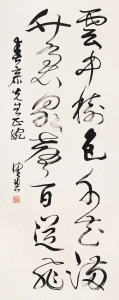 雲中樹色千花滿
竹裏泉聲百道飛
先生正